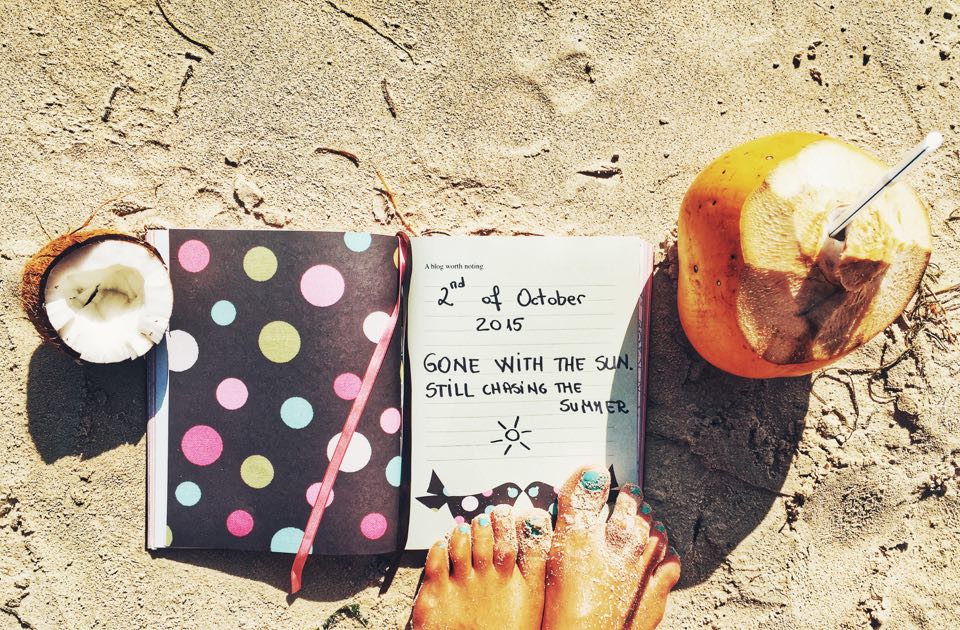 A blog worth noting
2nd of October
2015
GONE WITH THE SUN.
STILL CHASING THE
SUMMER